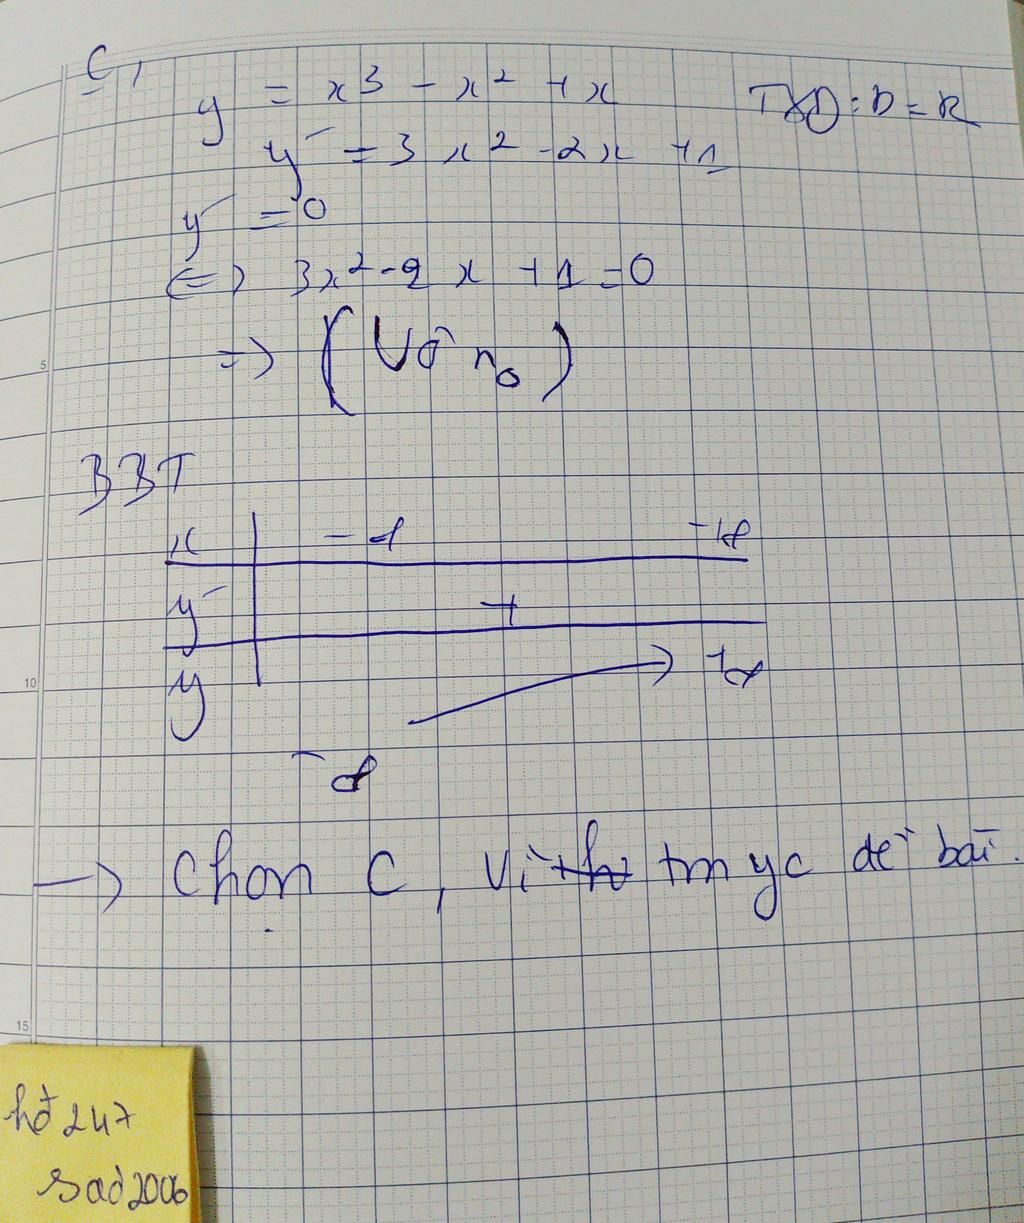 C,
y = x³ - x² + x    TXĐ: D = R
y' = 3x² - 2x + 1
y' = 0
<=> 3x² - 2x + 1 = 0
=> (Vô n₀)
BBT
x  -∞  +∞
y'  +
y  +∞
-∞
-> Chọn C, Vì tm yc đề bài.
5
10
15
hỏ 247
sad2006